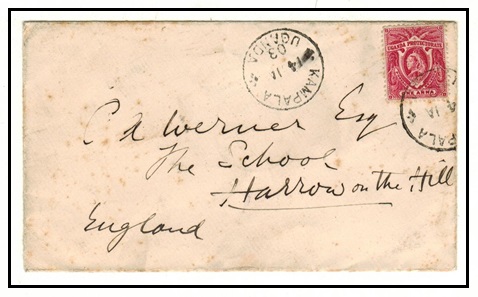 KAMPALA
14 JA
03
UGANDA
UGANDA PROTECTORATE
ONE ANNA
PALA
JA
C A Werner Esq
The School
Harrow on the Hill
England